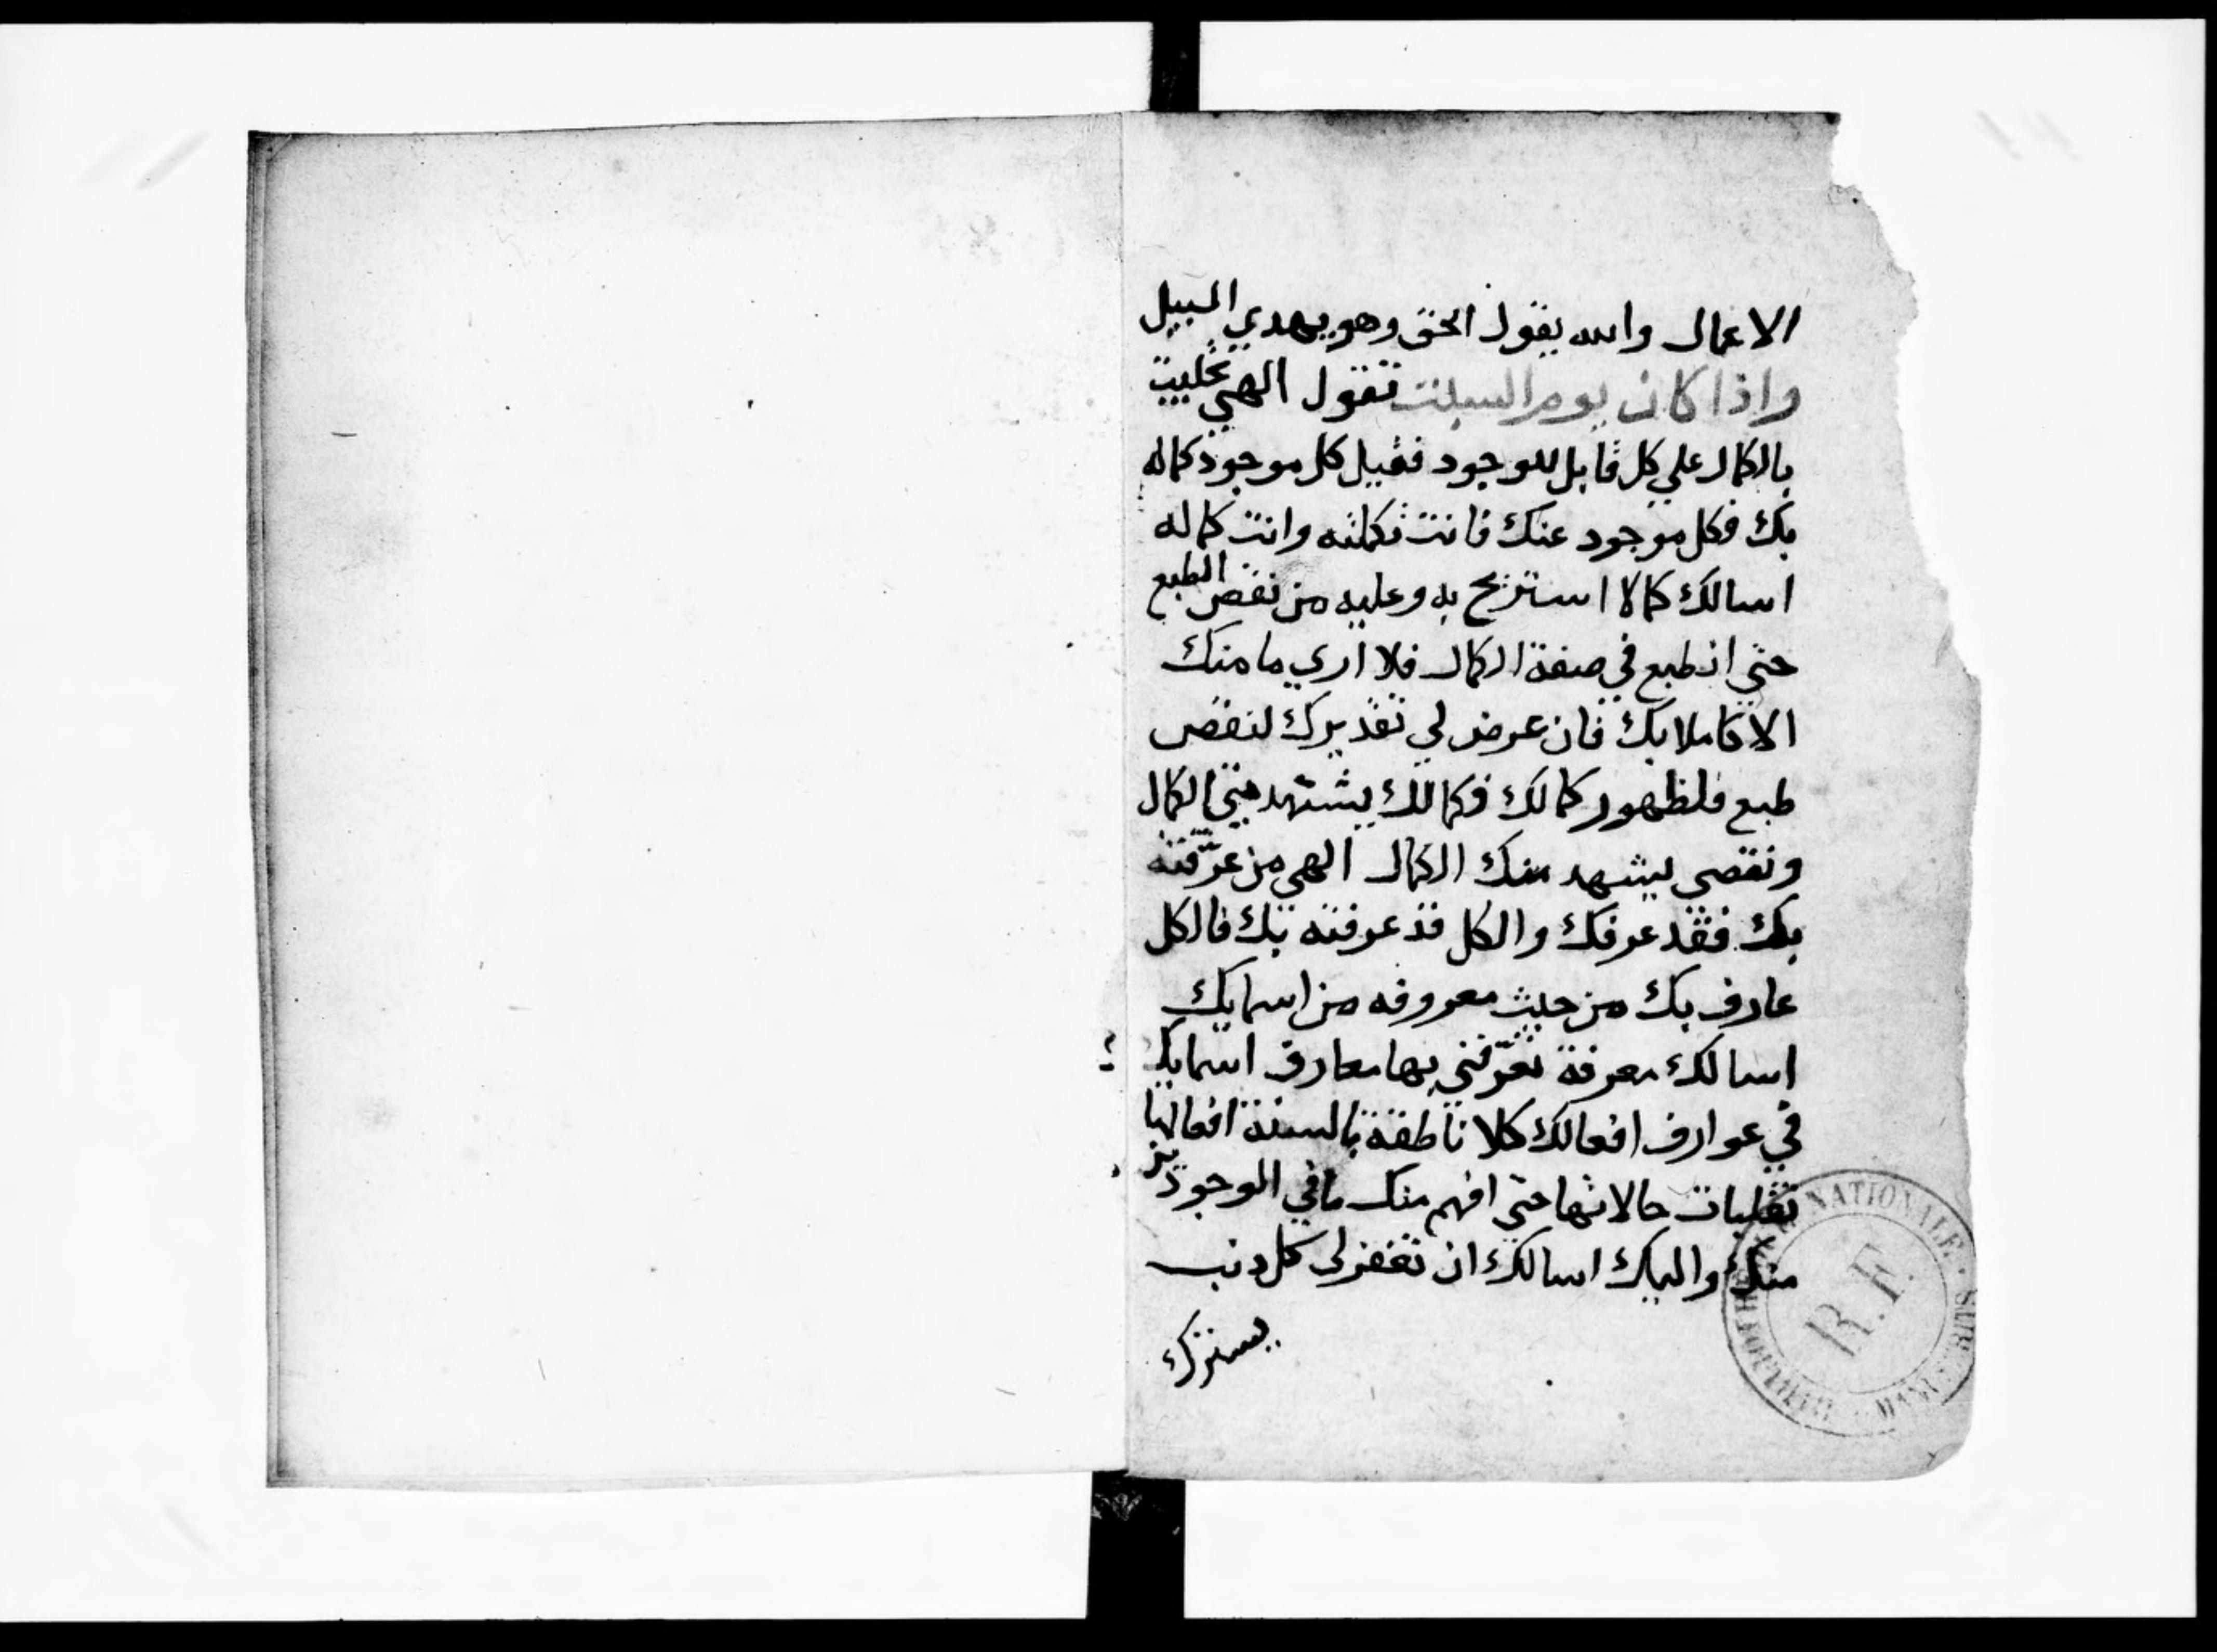 الاعمال والله يقول الحق وهو يهدي السبيل
واذا كان يوم السبت تقول الهي تجليت
بالكمال علي كل قابل للوجود فقبل كل موجود كماله
بك فكل موجود عنك فانت تكملته وانت كماله
اسالك كمالا استريح به وعليه من نقص الطبع
حتي انطبع في صفة الكمال فلا اري ما منك
الا كاملا بك فان عرض لي تقديرك لنقص
طبع فلظهور كمالك فكمالك يشتهد مني الكمال
ونقصي يشهد منك الكمال الهي من عرّفته
بك فقد عرفك والكل قد عرفته بك فالكل
عارف بك من حيث معروفه من اسمايك
اسالك معرفة تعرّفني بها معارف اسمايك
في عوارف افعالك كلا ناطقة بالسنة افعالها
تقلبات حالاتها حتي افهم منك ما في الوجود
منك واليك اسالك ان تغفر لي كل ذنب
يسترك
BIBLIOTHÈQUE NATIONALE
MANUSCRITS
R.F.